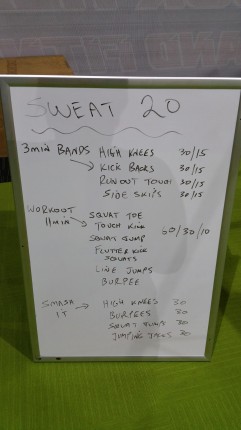 SWEAT 20
3MIN BANDS HIGH KNEES 30/15
KICK BACKS 30/15
RUNOUT TOUCH 30/15
SIDE SKIPS 30/15
WORKOUT SQUAT TOE
11MIN TOUCH KICK
SQUAT JUMP 60/30/10
FLUTTER KICK
SQUATS
LINE JUMPS
BURPEE
SMASH HIGH KNEES 30
IT BURPEES 30
SQUAT JUMPS 30
JUMPING JACKS 30